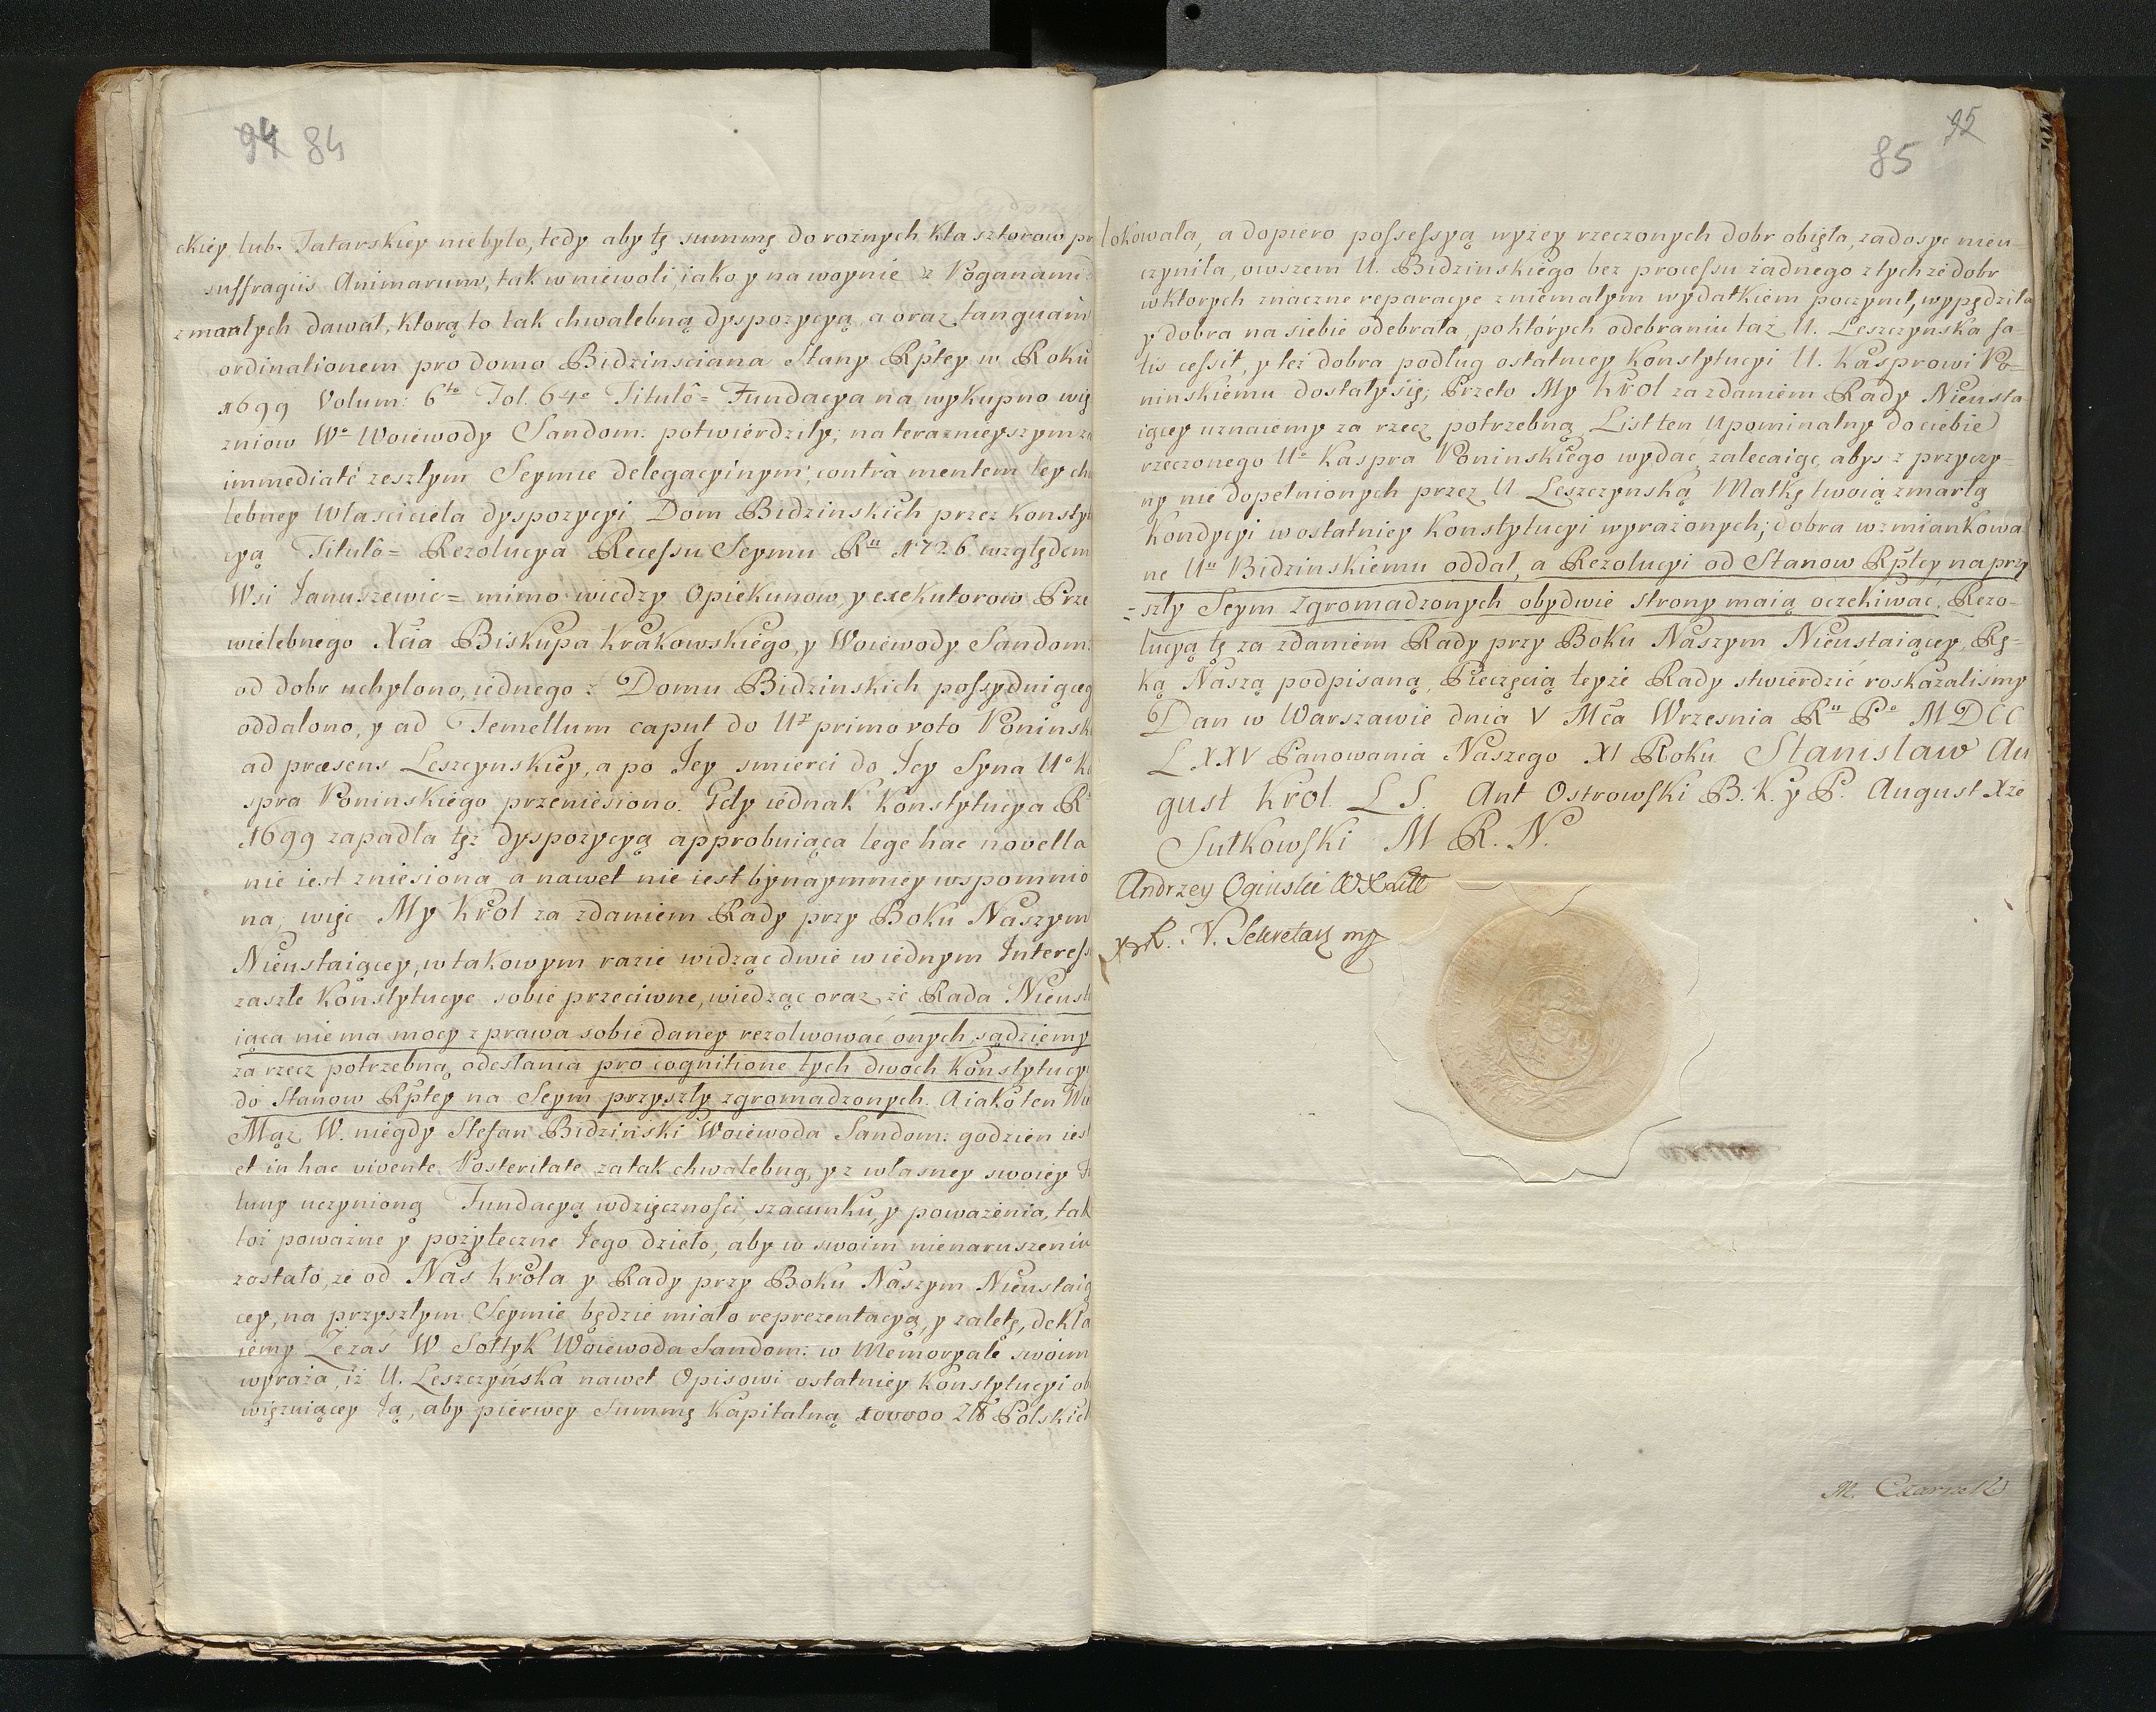 94 84
ckiey lub Tatarskiey niebyło, tedy aby tę summę do rożnych klasztorow pr
suffragiis Animarum, tak w niewoli, iako y na woynie z Poganami
zmarłych dawał, ktorą to tak chwalebną dyspozycyą, a oraz tanquam
ordinationem pro domo Bidzinsciana Stany Rpltey w Roku
1699 Volum: 6to Fol. 64o Titulô = Fundacya na wykupno wię
zniow Wo Woiewody Sandom: potwierdziły; na teraznieyszym
immediatè zeszłym Seymie delegacyinym, contrà mentem tey ch
lebney Własciciela dyspozycyi, Dom Bidzinskich przez Konsty
cyą Titulô = Rezolucya Recessu Seymu Ru 1726 względem
Wsi Januszewic = mimo wiedzy Opiekunow, y exekutorow Prze
wielebnego Xcia Biskupa Krakowskiego, y Woiewody Sandom:
od dobr uchylono, iednego z Domu Bidzinskich possyduiąceg
oddalono, y ad Femellum caput do Ur primo voto Poninsk
ad præsens Leszczynskiey, a po Jey smierci do Jey Syna Uo K
spra Poninskiego przeniesiono. Gdy iednak Konstytucya R
1699 zapadła tęż dyspozycyą approbuiąca lege hac novella
nie iest zniesiona, a nawet nie iest bynaymniey wspomnio
na, więc My Krol za zdaniem Rady przy Boku Naszym
Nieustaiącey, w takowym razie widząc dwie w iednym Interess
zaszłe Konstytucye sobie przeciwne, wiedząc oraz, że Rada Nieust
iąca nie ma mocy z prawa sobie daney rezolwować onych, sądziemy
za rzecz potrzebną odesłania pro cognitione tych dwoch Konstytucy
do Stanow Rpltey na Seym przyszły zgromadzonych. A iako ten
Mąż W. niegdy Stefan Bidziński Woiewoda Sandom: godzien ies
et in hac vivente Posteritate za tak chwalebną, y z własney swoiey
tuny uczynioną Fundacyą wdzięczności, szacunku, y poważenia, tak
toż poważne y pożyteczne Jego dzieło, aby w swoim nienaruszeniu
zostało, że od Nas Krola y Rady przy Boku Naszym Nieustaią
cey, na przyszłym Seymie będzie miało reprezentacyą, y zaletę, dekla
iemy. Zezaś W Sołtyk Woiewoda Sandom: w Memoryale swoim
wyraża, iż U. Leszczyńska nawet Opisowi ostatniey Konstytucyi ob
więzuiącey Ją, aby pierwey Summę Kapitalną 100000 Złł Polskich
95
85
lokowała, a dopiero possessyą wyżey rzeczonych dobr obięła, zadosyc nieu-
czyniła, owszem U. Bidzinskiego bez processu żadnego z tychże dobr
w ktorych znaczne reparacye z niemałym wydatkiem poczynił, wypędziła
y dobra na siebie odebrała, po których odebraniu taż U. Leszczynska fa-
tis cessit, y też dobra podług ostatniey Konstytucyi U. Kasprowi Po=
ninskiemu dostały się; Przeto My Krol za zdaniem Rady Nieusta
iącey uznaiemy za rzecz potrzebną List ten Upominalny do ciebie
rzeczonego Uo Kaspra Poninskiego wydać, zalecaiąc, abys z przyczy=
ny nie dopełnionych przez U. Leszczynską Matkę twoią zmarłą
Kondycyi w ostatniey Konstytucyi wyrażonych; dobra wzmiankowa
ne Uu Bidzinskiemu oddał, a Rezolucyi od Stanow Rpltey na przy
=szły Seym zgromadzonych obydwie strony maią oczekiwac. Rezo-
lucyą tę za zdaniem Rady przy Boku Naszym Nieustaiącey, Rę-
ką Naszą podpisaną, Pieczęcią teyże Rady stwierdzić roskazalismy
Dan w Warszawie dnia V Mca Wrzesnia Ru Po MDCC
LXXV Panowania Naszego XI Roku Stanisław Au
gust Krol. L S. Ant Ostrowski B. K. y P. August Xże
Sułkowski M R. N.
Andrzey Oginski
Sekretarz mp
M. Czarn